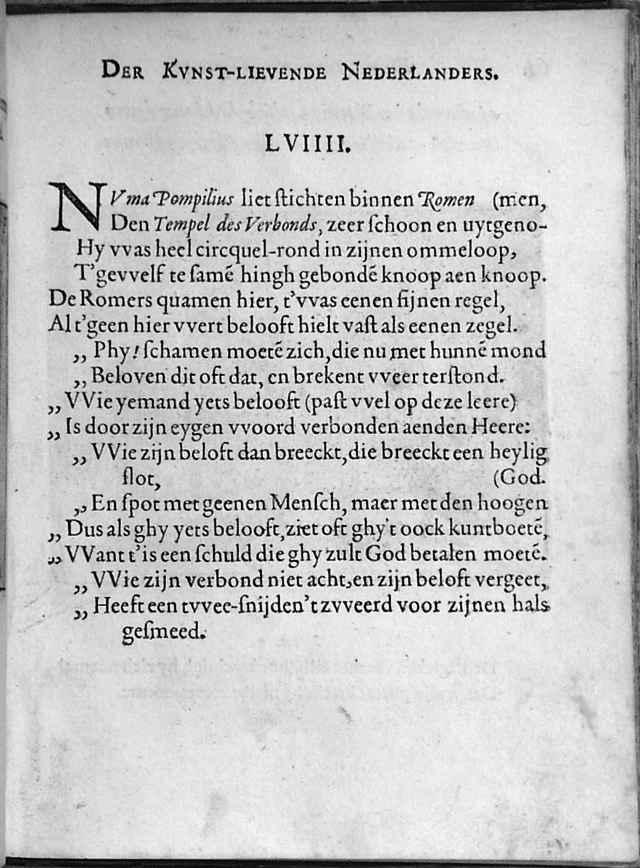 DER KVNST-LIEVENDE NEDERLANDERS.
LVIIII.
NVma Pompilius liet ſtichten binnen Romen (men,
Den Tempel des Verbonds, zeer ſchoon en uytgeno-
Hy vvas heel circquel-rond in zijnen ommeloop,
T'gevvelf te ſamē hingh gebondē knoop aen knoop.
De Romers quamen hier, t'vvas eenen fijnen regel,
Al t'geen hier vvert belooft hielt vaſt als eenen zegel.
,, Phy! ſchamen moetē zich, die nu met hunnē mond
,, Beloven dit oft dat, en brekent vveer terſtond.
,, VVie yemand yets belooft (paſt vvel op deze leere)
,, Is door zijn eygen vvoord verbonden aenden Heere:
,, VVie zijn beloft dan breeckt, die breeckt een heylig
ſlot, (God.
,, En ſpot met geenen Menſch, maer met den hoogen
,, Dus als ghy yets belooft, ziet oft ghy't oock kunt boetē,
,, VVant t'is een ſchuld die ghy zult God betalen moetē.
,, VVie zijn verbond niet acht, en zijn beloft vergeet,
,, Heeft een tvvee-ſnijden't zvveerd voor zijnen hals
geſmeed.